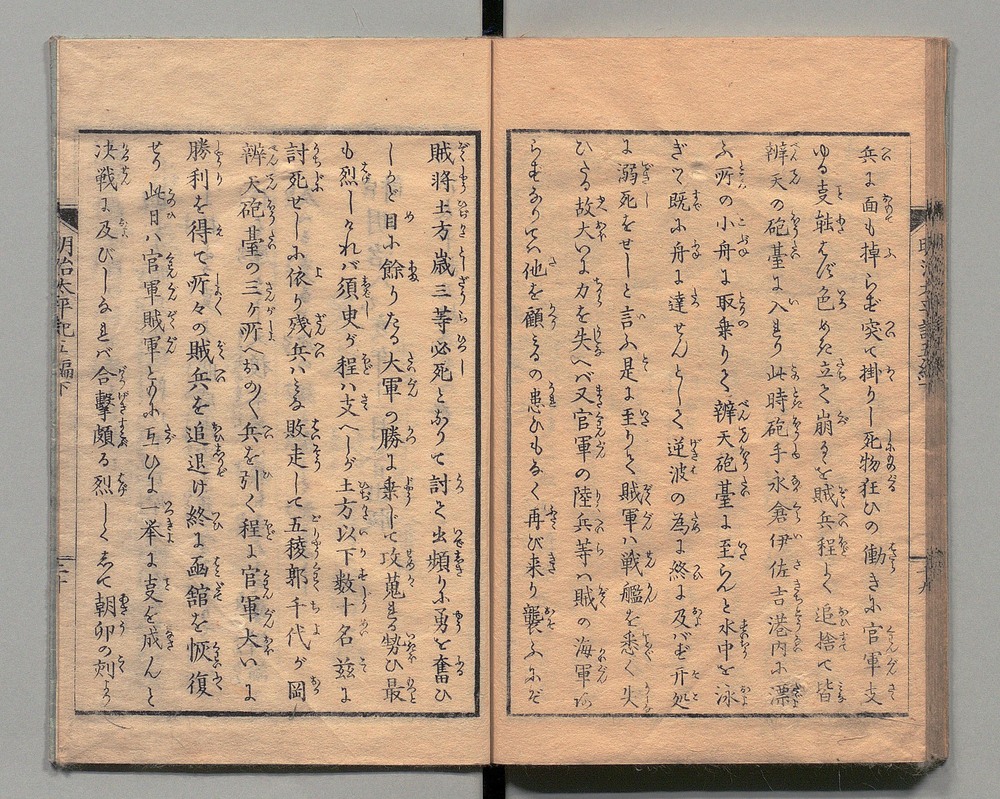 兵に面も掉らず突て掛りし死物狂ひの働きに官軍支
ゆる事能はず色めき立て崩るを賊兵程よく追捨て皆
辨天の砲臺に入れり此時砲手永倉伊佐吉港内に漂
ふ所の小舟に取乗りて辨天砲臺に至らんと水中を泳
ぎて既に小舟に達せんとして逆波の為に終に及ばず其処
に溺死をせしと言ふ是に至りて賊軍ハ戦艦を悉く失
ひたる故大いに力を失へバ又官軍の陸兵等ハ賊の海軍の
らずなりてハ他を顧みるの患ひもなく再び来り襲ふにぞ
賊将土方歳三等必死となりて討て出頻りに勇を奮ひ
しかど目に餘りたる大軍の勝に乗じて攻蒐る勢ひ最
も烈しければ須臾が程ハ支へしが土方以下数十名茲に
討死せしに依り残兵ハみな敗走して五稜郭千代が岡
辨天砲臺の三ヶ所へおの〳〵兵を引く程に官軍大いに
勝利を得て所々の賊兵を追退け終に凾舘を恢復
せり此日ハ官軍賊軍ともに互ひに一挙に事を成んと
决戦に及びしなれバ合撃頗る烈しくして朝卯の刻より
明治太平記五編下